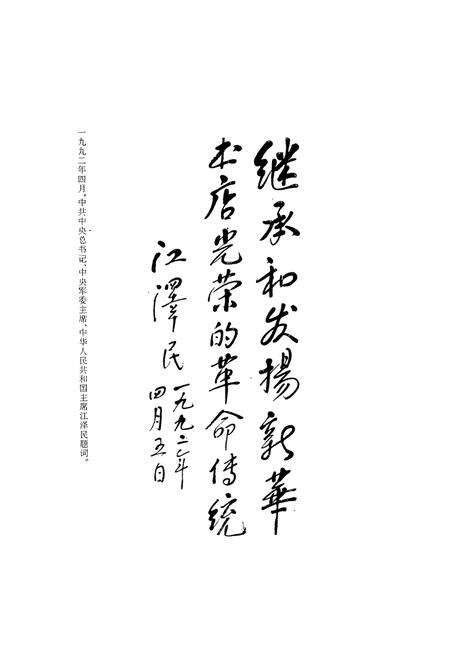 继承和发扬新華
书店光荣的革命传统
江澤民 一九九二年
四月五日
一九九二年四月，中共中央总书记、中央军委主席、中华人民共和国主席江泽民题词。